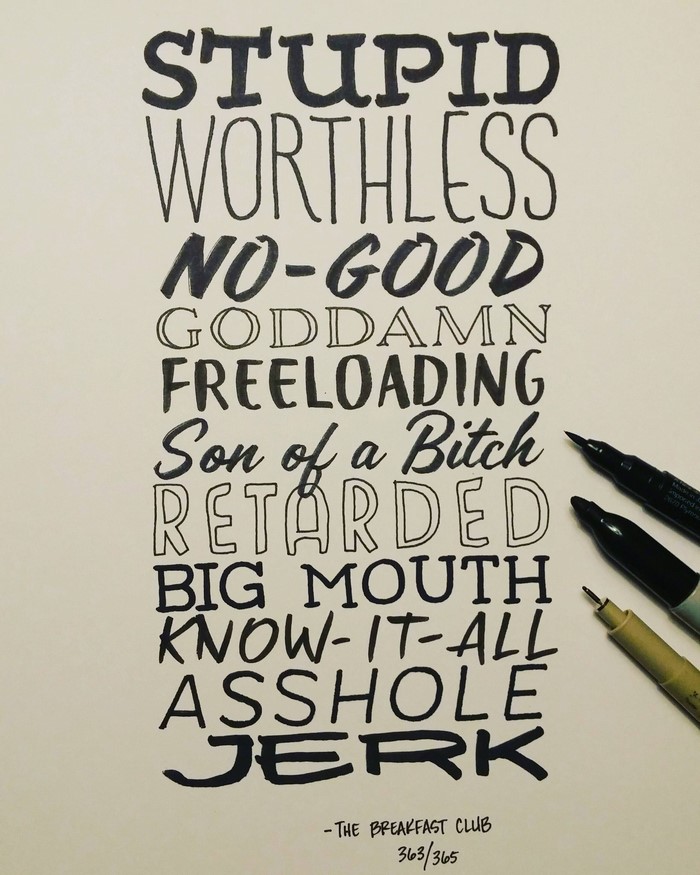 STUPID
WORTHLESS
NO-GOOD
GODDAMN
FREELOADING
Son of a Bitch
RETARDED
BIG MOUTH
KNOW-IT-ALL
ASSHOLE
JERK
-THE BREAKFAST CLUB
363/365